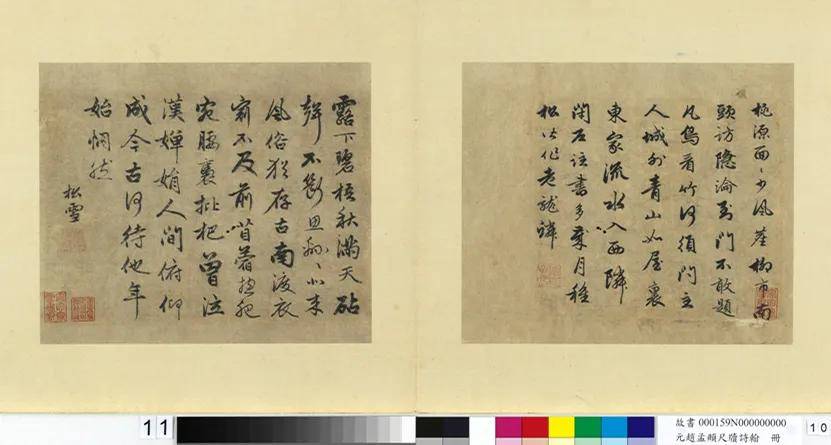 桃源面〻少風塵柳市南
頭訪隱淪到門不敢題
凡鳥看竹何須問主
人城外青山如屋裏
東家流水入西隣
閉戶註書多歲月種
松皆作老龍鱗
露下碧梧秋滿天砧
聲不斷思綿〻北來
風俗猶存古南渡衣
冠不及前苜蓿總肥
宛腰褭枇杷曾泣
漢嬋娟人間俯仰
成今古何待他年
始惘然
松雪
11
故書 000159N000000000
元趙孟頫尺牘詩翰 冊
10